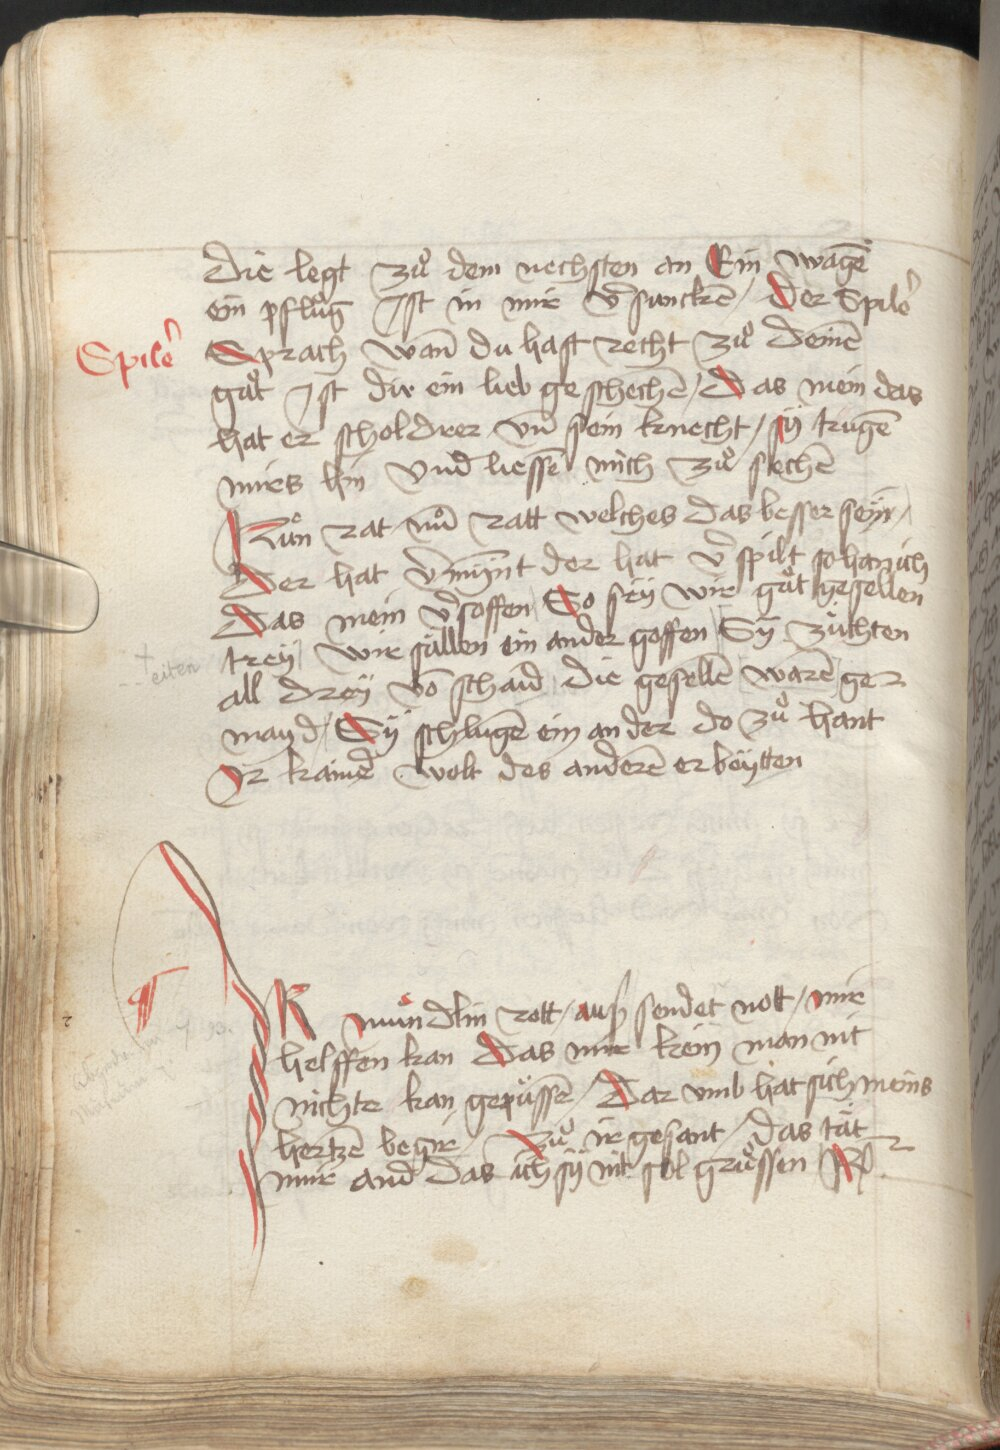 Die legt zuͦ dem nechsten an Ein wagē
ein pfluͦg Ist in mir v̄suncken / Der Spilr̄
Spilr̄
Sprach wan̄ du hast recht zuͦ deinē
guͦt Ist dir ein lieb geschechē / Das mein das
hat er scholdrer vn̄ sein knecht / sÿ trugē
mirs hin Vnd liessē mich zuͦ sechē
Nuͦn rat nuͦ ratt welches das besser seÿ /
Der hat v̄mÿnt der hat v̄spilt so han ich
Das mein v̄soffen So seÿ wir guͦt gesellen
treÿ / wir sullen ein ander geffen Sÿ zuͦchten
eiten
all dreÿ vō schaid die gesellē warē ge
mayd / Sÿ schlugē ein ander do zuͦ hant
Ir kainer wolt des anderē erbeÿtten
IR muͤndlin rott / auß sendet nott / mir
helffen kan Das mir kein man nit
nichtz kan gepuͤssē / Dar vmb hat sich meins
hertzē begir / Zuͦ ir gesant / das tuͤt
mir and das ich sÿ nit sol gruͤssen Rp̄